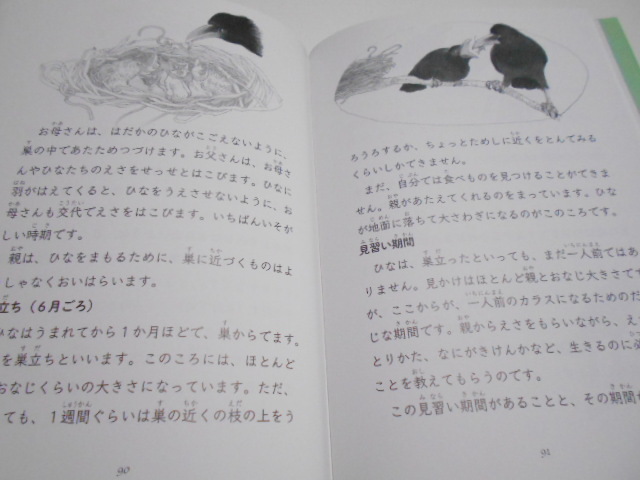 お母さんは、はだかのひながこごえないように、
巣の中であたためつづけます。お父さんは、お母さ
んやひなたちのえさをせっせとはこびます。ひなに
羽がはえてくると、ひなをうえさせないように、お
母さんも交代でえさをはこびます。いちばんいそが
しい時期です。
親は、ひなをまもるために、巣に近づくものはよ
しゃなくおいはらいます。
立ち（6月ごろ）
ひなはうまれてから1か月ほどで、巣からでます。
を巣立ちといいます。このころには、ほとんど
おなじくらいの大きさになっています。ただ、
ても、1週間ぐらいは巣の近くの枝の上をう
90
ろうろするか、ちょっとためしに近くをとんでみる
くらいしかできません。
まだ、自分では食べものを見つけることができま
せん。親があたえてくれるのをまっています。ひな
が地面に落ちて大さわぎになるのがこのころです。
見習い期間
ひなは、巣立ったといっても、まだ一人前ではあ
りません。見かけはほとんど親とおなじ大きさです
が、ここからが、一人前のカラスになるためのだ
じな期間です。親からえさをもらいながら、え
とりかた、なにがきけんかなど、生きるのに必
ことを教えてもらうのです。
この見習い期間があることと、その期間が
91